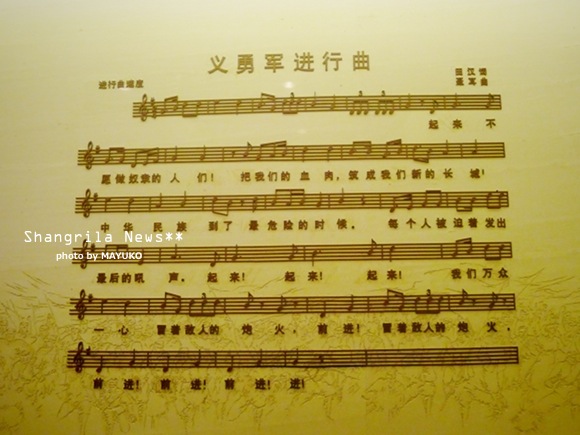 义勇军进行曲
进行曲速度
田汉词
聂耳曲
起来不
愿做奴隶的人们！把我们的血肉，筑成我们新的长城！
中华民族到了最危险的时候，每个人被迫着发出
Shangrila News**
photo by MAYUKO
最后的吼声，起来！起来！起来！我们万众
一心冒着敌人的炮火，前进！冒着敌人的炮火，
前进！前进！前进！进！